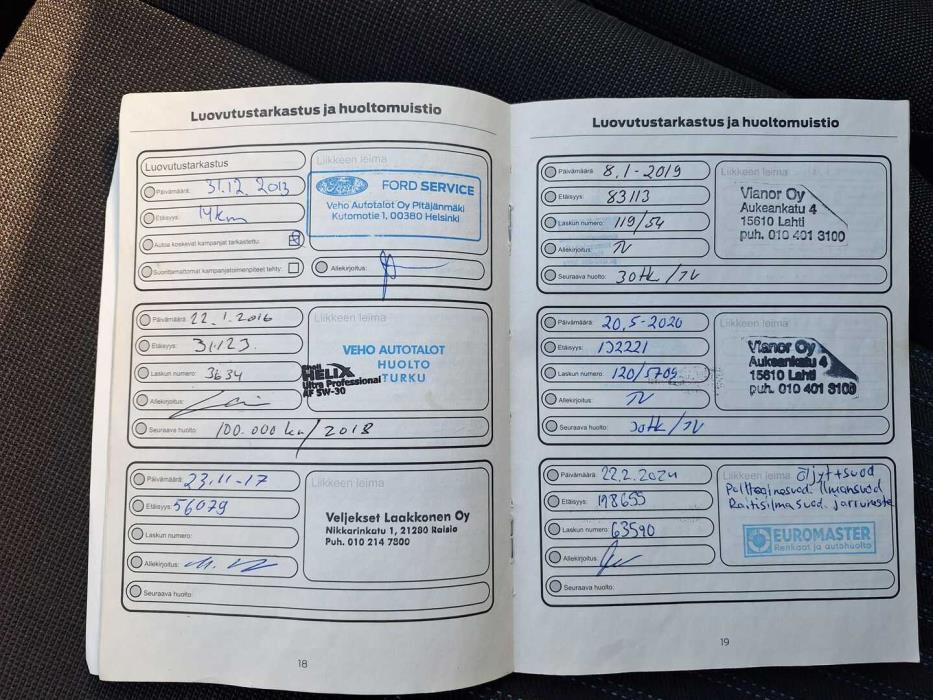 Luovutustarkastus ja huoltomuistio
Luovutustarkastus
Päivämäärä: 31.12 2013
Etäisyys: 14 km
Autoa koskevat kampanjat tarkastettu:
Suorittamattomat kampanjatoimenpiteet tehty:
Liikkeen leima
Ford
FORD SERVICE
Veho Autotalot Oy Pitäjänmäki
Kutomotie 1, 00380 Helsinki
Allekirjoitus:
Päivämäärä: 22.1.2016
Etäisyys: 31123.
Laskun numero: 3634
Allekirjoitus:
Seuraava huolto: 100.000 km / 2018
Liikkeen leima
VEHO AUTOTALOT
HUOLTO
TURKU
HELIX
Ultra Professional
AF 5W-30
Päivämäärä: 23.11-17
Etäisyys: 56079
Laskun numero:
Allekirjoitus:
Seuraava huolto:
Liikkeen leima
Veljekset Laakkonen Oy
Nikkarinkatu 1, 21280 Raisio
Puh. 010 214 7800
18
Luovutustarkastus ja huoltomuistio
Päivämäärä: 8.1-2019
Etäisyys: 83113
Laskun numero: 119/54
Allekirjoitus: TV
Seuraava huolto: 30tk/1V
Liikkeen leima
Vianor Oy
Aukeankatu 4
15610 Lahti
puh. 010 401 3100
Päivämäärä: 20.5-2020
Etäisyys: 102221
Laskun numero: 120/5709
Allekirjoitus: TV
Seuraava huolto: 30tk/1V
Liikkeen leima
Vianor Oy
Aukeankatu 4
15610 Lahti
puh. 010 401 3100
Päivämäärä: 22.2.2024
Etäisyys: 178655
Laskun numero: 63590
Allekirjoitus:
Seuraava huolto:
Liikkeen leima Öljyt+suod
Polttoainesuod. Ilmansuod
Raitisilmasuod. jarruneste
EUROMASTER
Renkaat ja autohuolto
19